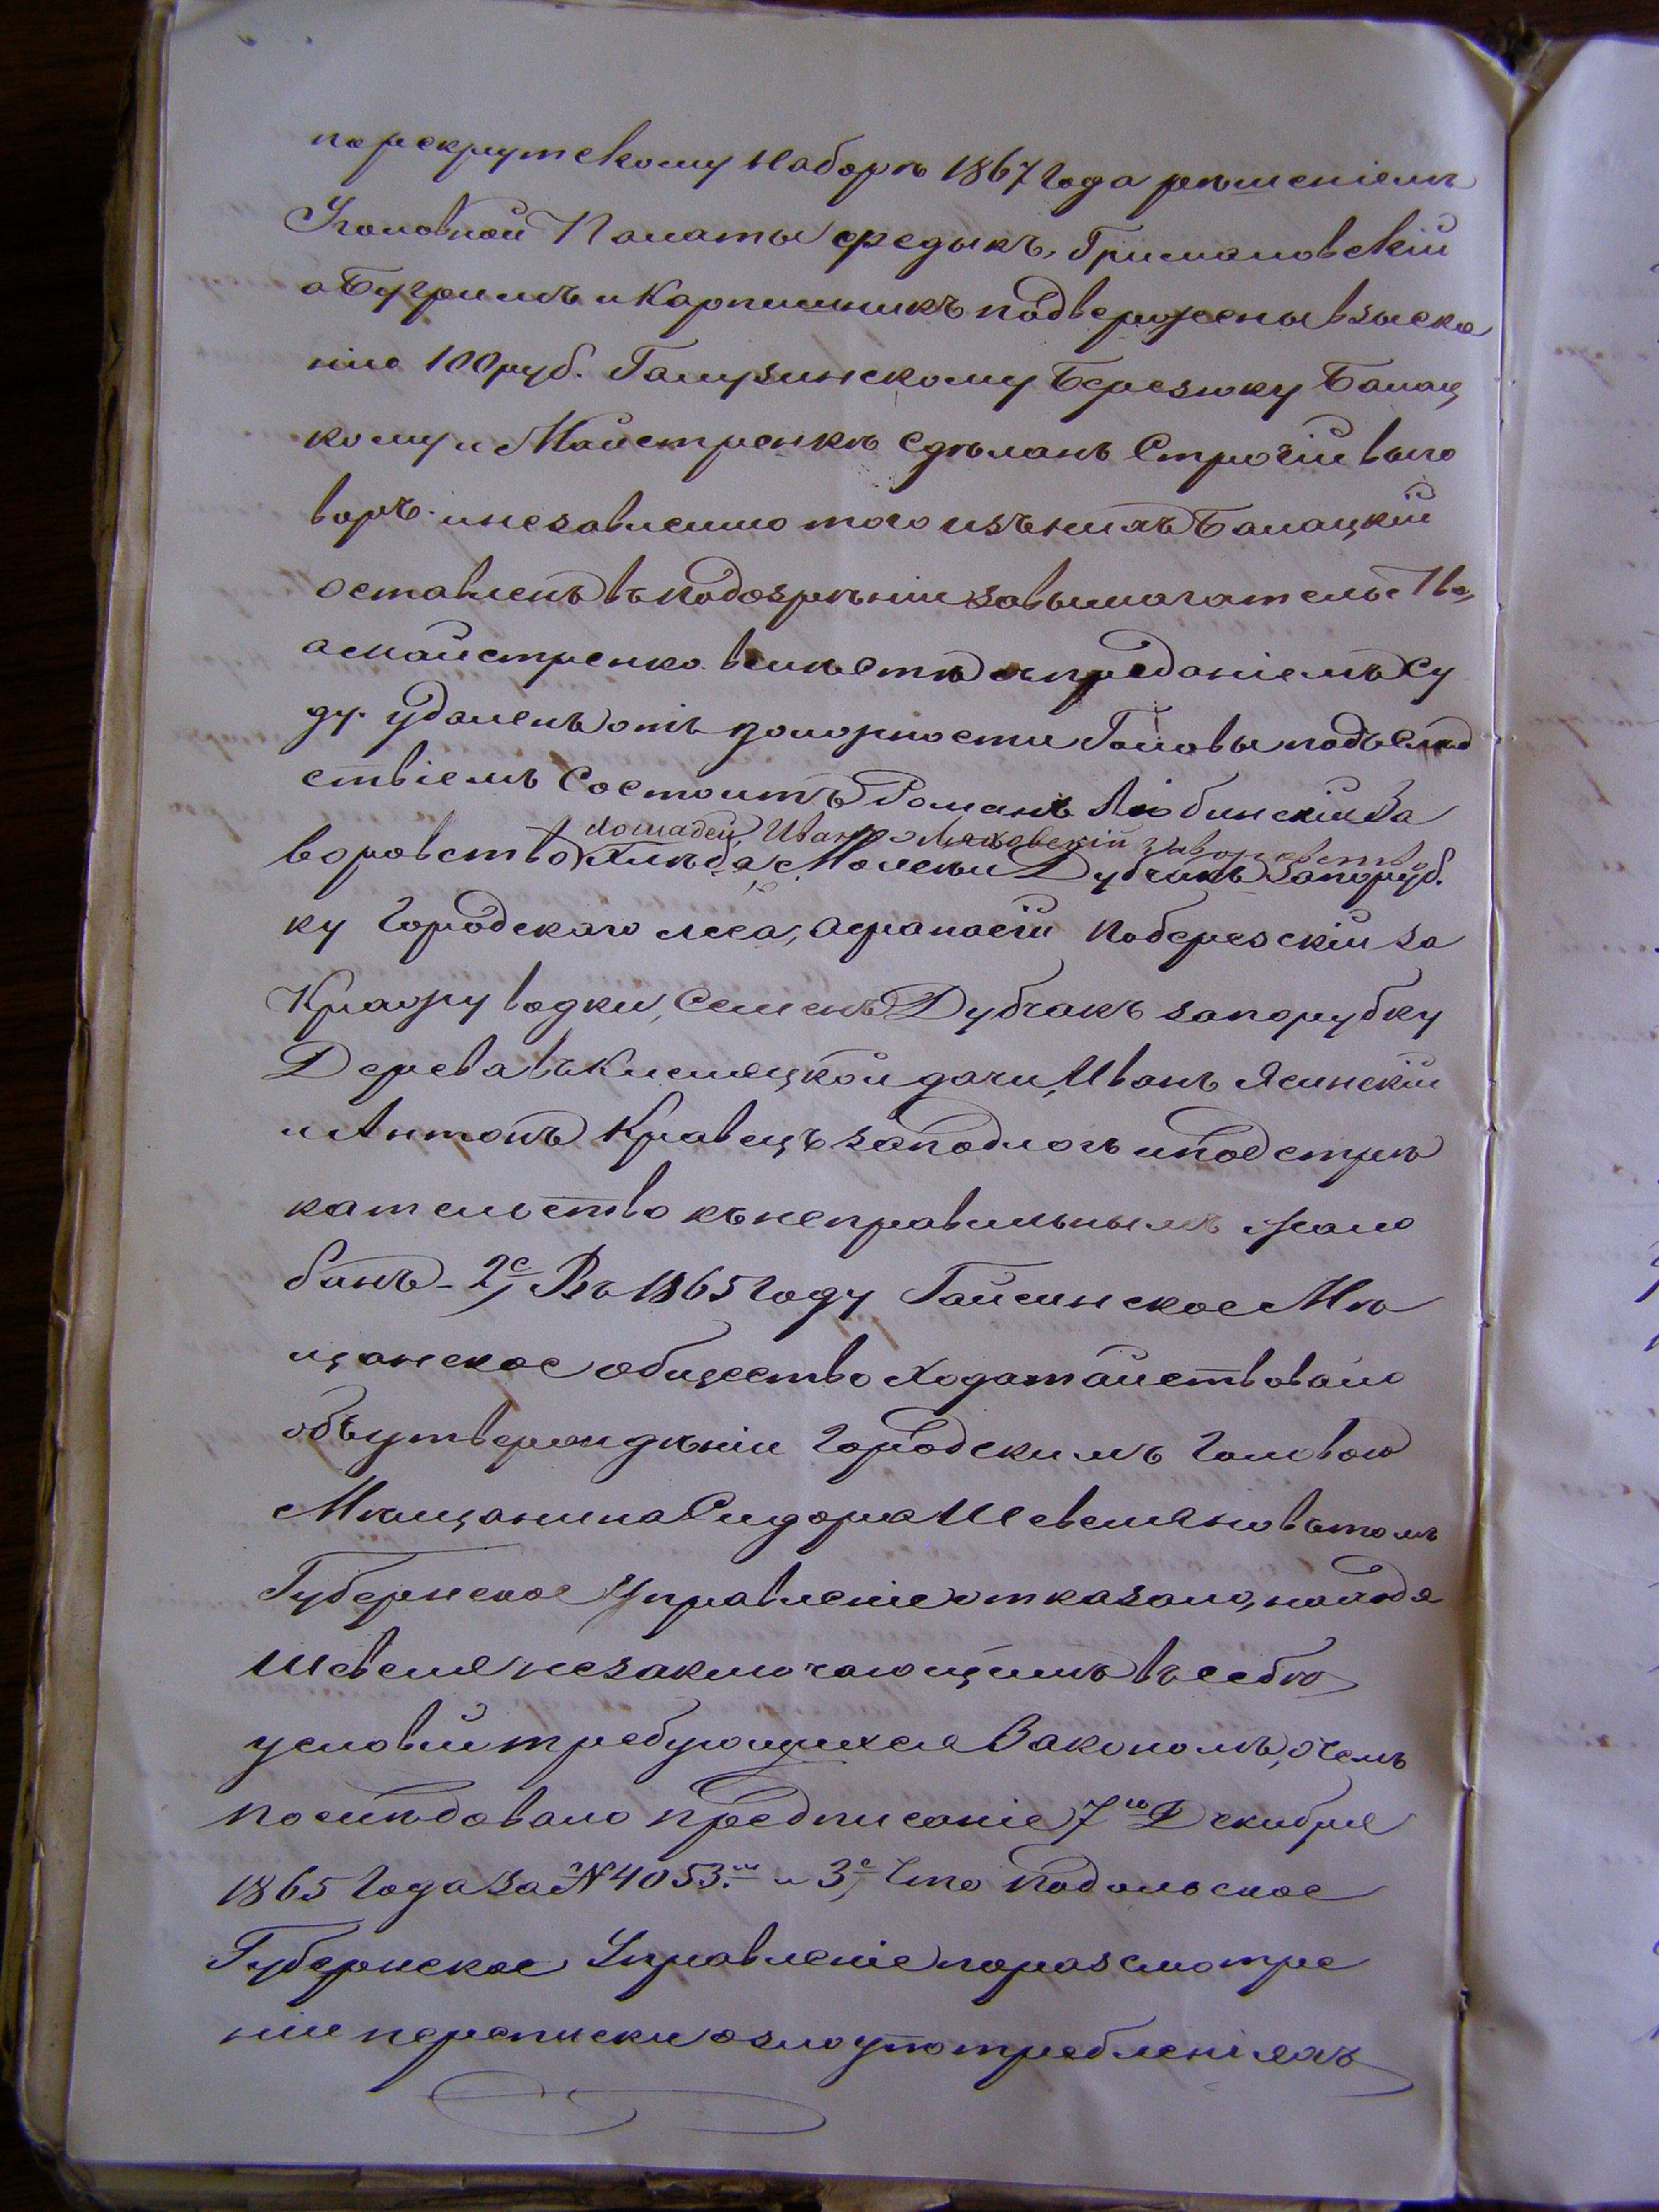 порекрутскому наборѣ 1867 года рѣшеніемъ
Уголовной Палаты Фредыкъ, Грималовскій
а Бугримъ и Карпишникъ подвержены взыска
нію 100 руб. Галузинскому Березюку Балац
кому и Майстренкѣ сдѣланъ Строгій выго
воръ. и независимо того изъ нихъ Балацкій
оставленъ въ подозрѣніи за вымогательство,
а Майстренко вмѣстѣ съ преданіемъ Су
ду. удаленъ отъ должности Головы подъ слѣд
ствіемъ Состоитъ Романъ Любинскій за
лошадей, Иванъ Ляховскій за воровство
воровство хлѣба, Мосей Дубчакъ за поруб.
ку Городскаго леса, Афанасій Побережскій за
Кражу водки, Семенъ Дубчакъ за порубку
Дерева въ Кисляцкой дачи, Иванъ Ясинскій
и Антонъ Кравецъ за подлогъ и подстре
кательство къ неправильнымъ жало
бамъ – 2е, Въ 1865 году Гайсинское Мѣ
щанское общество ходатайствовало
объ утвержденіи Городскимъ Головою
Мѣщанина Сидора Шевеля но въ томъ
Губернское Управленіе отказало, находя
Шевеля незаключающимъ въ себѣ
условій требующихся Закономъ, о чемъ
последовало предписаніе 7го Декабря
1865 года за № 4053.м и 3е, Что Подольское
Губернское Управленіе поразсмотре
ніи переписки о злоупотребленіяхъ